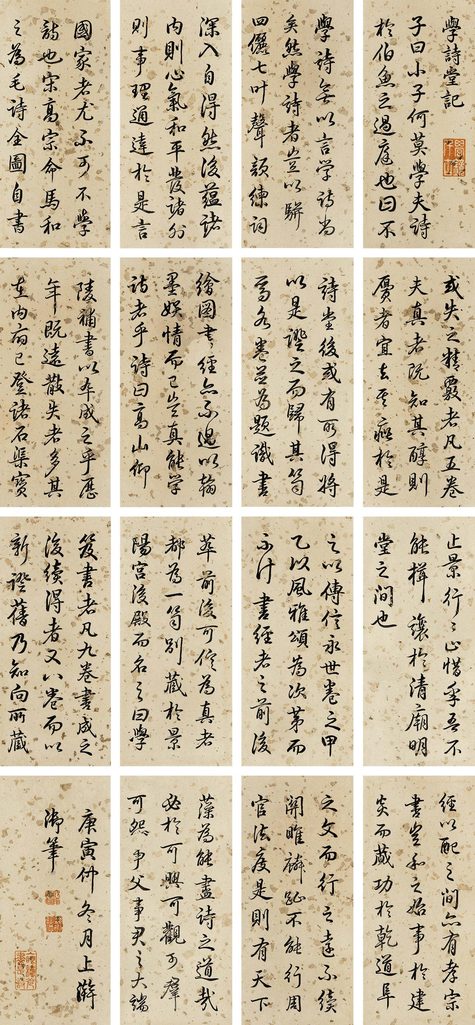 學詩堂記
子曰小子何莫學夫詩
於伯魚之過庭也曰不
學詩無以言學詩尚
矣然學詩者豈以駢
四儷七叶聲韻練詞
深入自得然後蘊諸
内則心氣和平發諸外
則事理通達於是言
國家者尤不可不學
詩也宋高宗命馬和
之為毛詩全圖自書
或失之精覈者凡五卷
夫真者既知其醇則
贋者宜去其疵於是
詩堂後或有所得將
以是證之而歸其笥
焉各卷並為題識書
繪圖書經亦不過以翰
墨娛情而已豈真能學
詩者乎詩曰高山仰
陵補書以卒成之乎歷
年既遠散失者多其
在内府已登諸石渠寶
止景行〻止惜乎吾不
能揖讓於清廟明
堂之間也
之以傳信永世卷之甲
乙以風雅頌為次第而
不計書經者之前後
萃前後可信為真者
都為一笥別藏於景
陽宮後殿而名之曰學
笈書者凡九卷書成之
後續得者又八卷而以
新證舊乃知向所藏
經以配之亦有孝宗
書豈和之始事於建
炎而蕆功於乾道阜
之文而行之遠不讀
關雎麟趾不能行周
官法度是則有天下
藻為能盡詩之道哉
必於可興可觀可羣
可怨事父事君之大端
庚寅仲冬月上澣
御筆